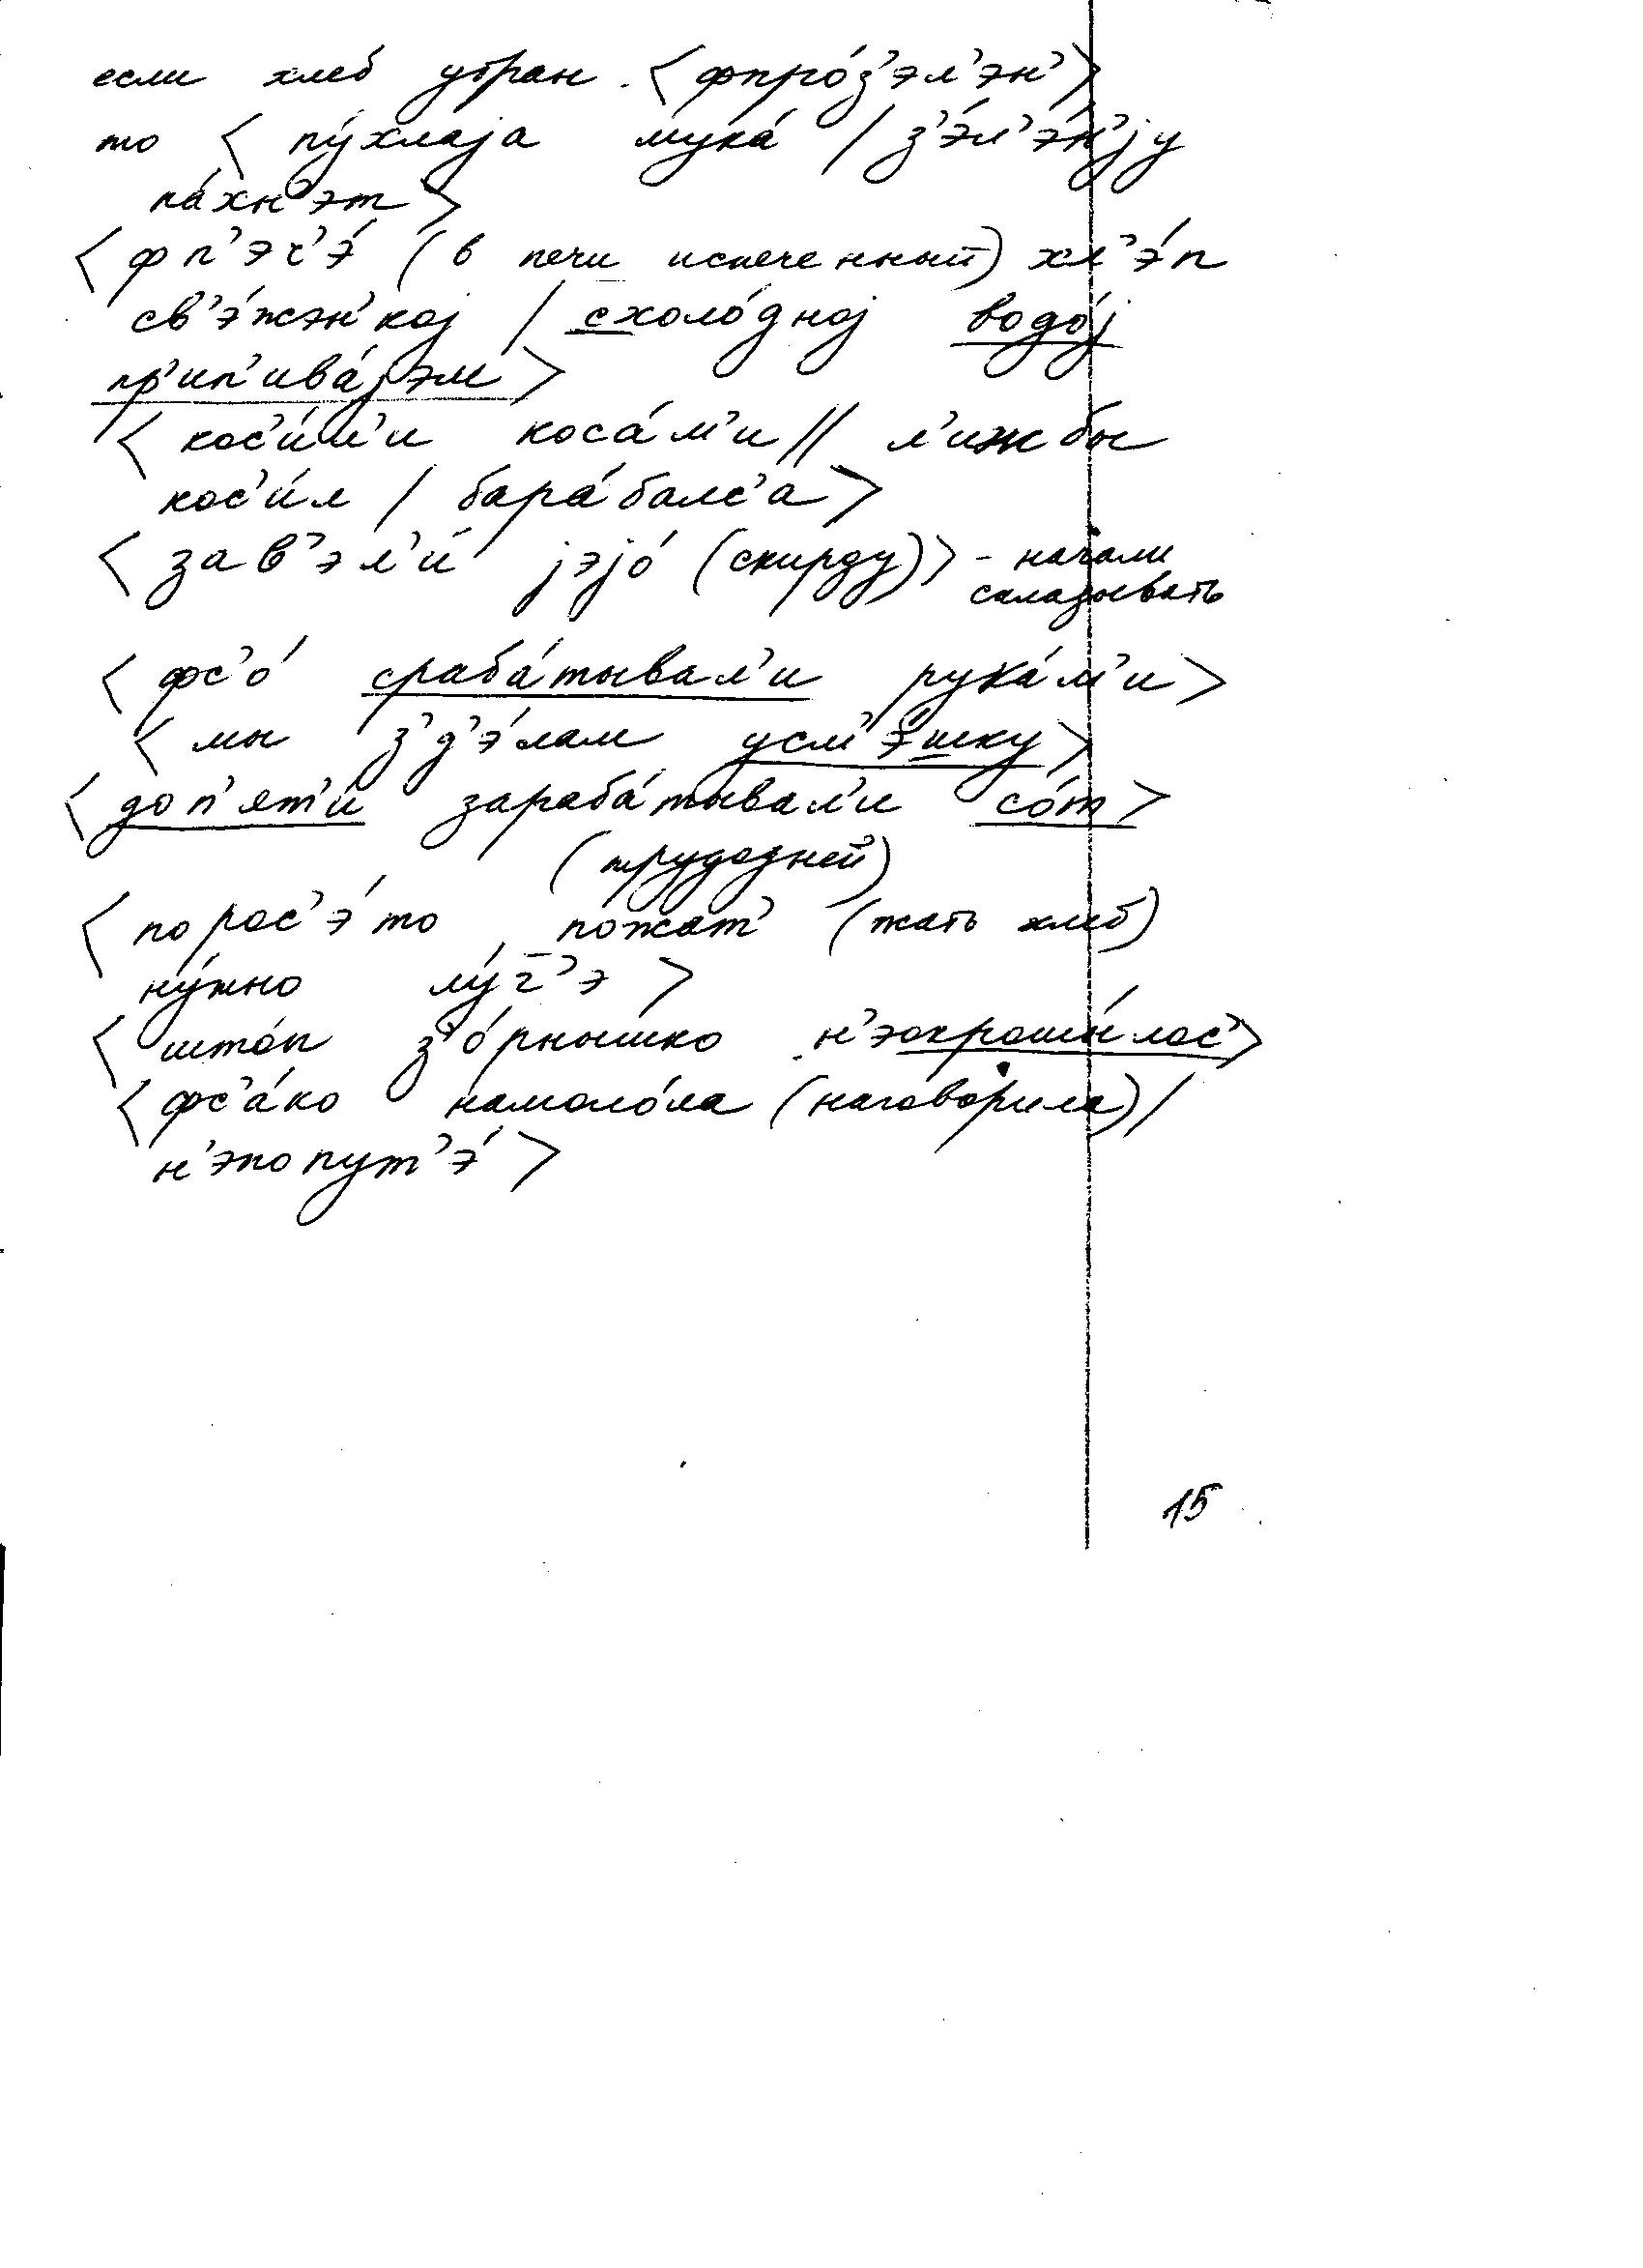 если хлеб убран <фпро́з'эл'эн'>
то <пу́хлаjа мука́ / з'э́л'эн'jу
па́хн'эт>
<фп'эч'э́ (в печи испеченный) хл'э́п
св'э́жэн'коj / схоло́дноj водо́j
пр'ип'ива́jэм>
<кос'и́л'и коса́м'и // л'ижбы
кос'и́л / бара́балс'а>
<зав'эл'и́ jэjо́ (скирду)> - начали
складывать
<фс'о́ сраба́тывал'и рука́м'и>
<мы з'д'э́лам усм'э́шку>
<доп'ят'и́ зараба́тывал'и со́т>
(трудодней)
<порос'э́то пожат' (жать хлеб)
ну́жно лу́ч'э>
<што́п з'о́рнышко н'эокроши́лос'>
<фс'а́ко намоло́ла (наговорила) /
н'эпопут'э́>
15